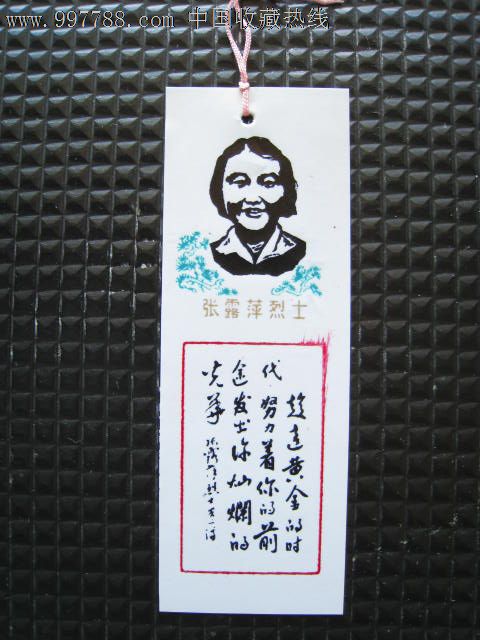 www.997788.com 中国收藏热线
张露萍烈士
趁这黄金的时
代·努力着你的前
途发出你灿爛的
光華
张露萍烈士